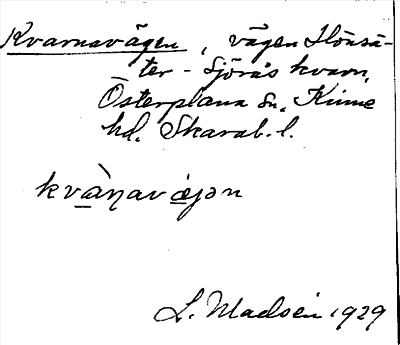 Kvarnavägen, vägen Hönsä-
ter - Sjörås kvarn,
Österplana sn. Kinne
hd. Skarab. l.
kvànavæ̀jən
L. Madsén 1929